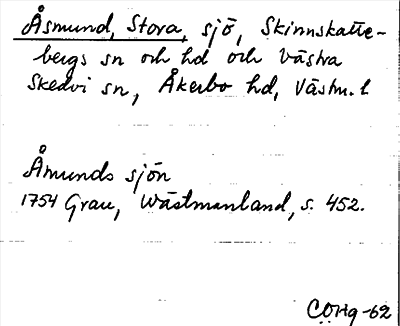 Åsmund, Stora, sjö, Skinnskatte-
bergs sn och hd och Västra
Skedvi sn, Åkerbo hd, Västm. l
Åmunds sjön
1754 Grau, Wästmanland, s. 452.
-62